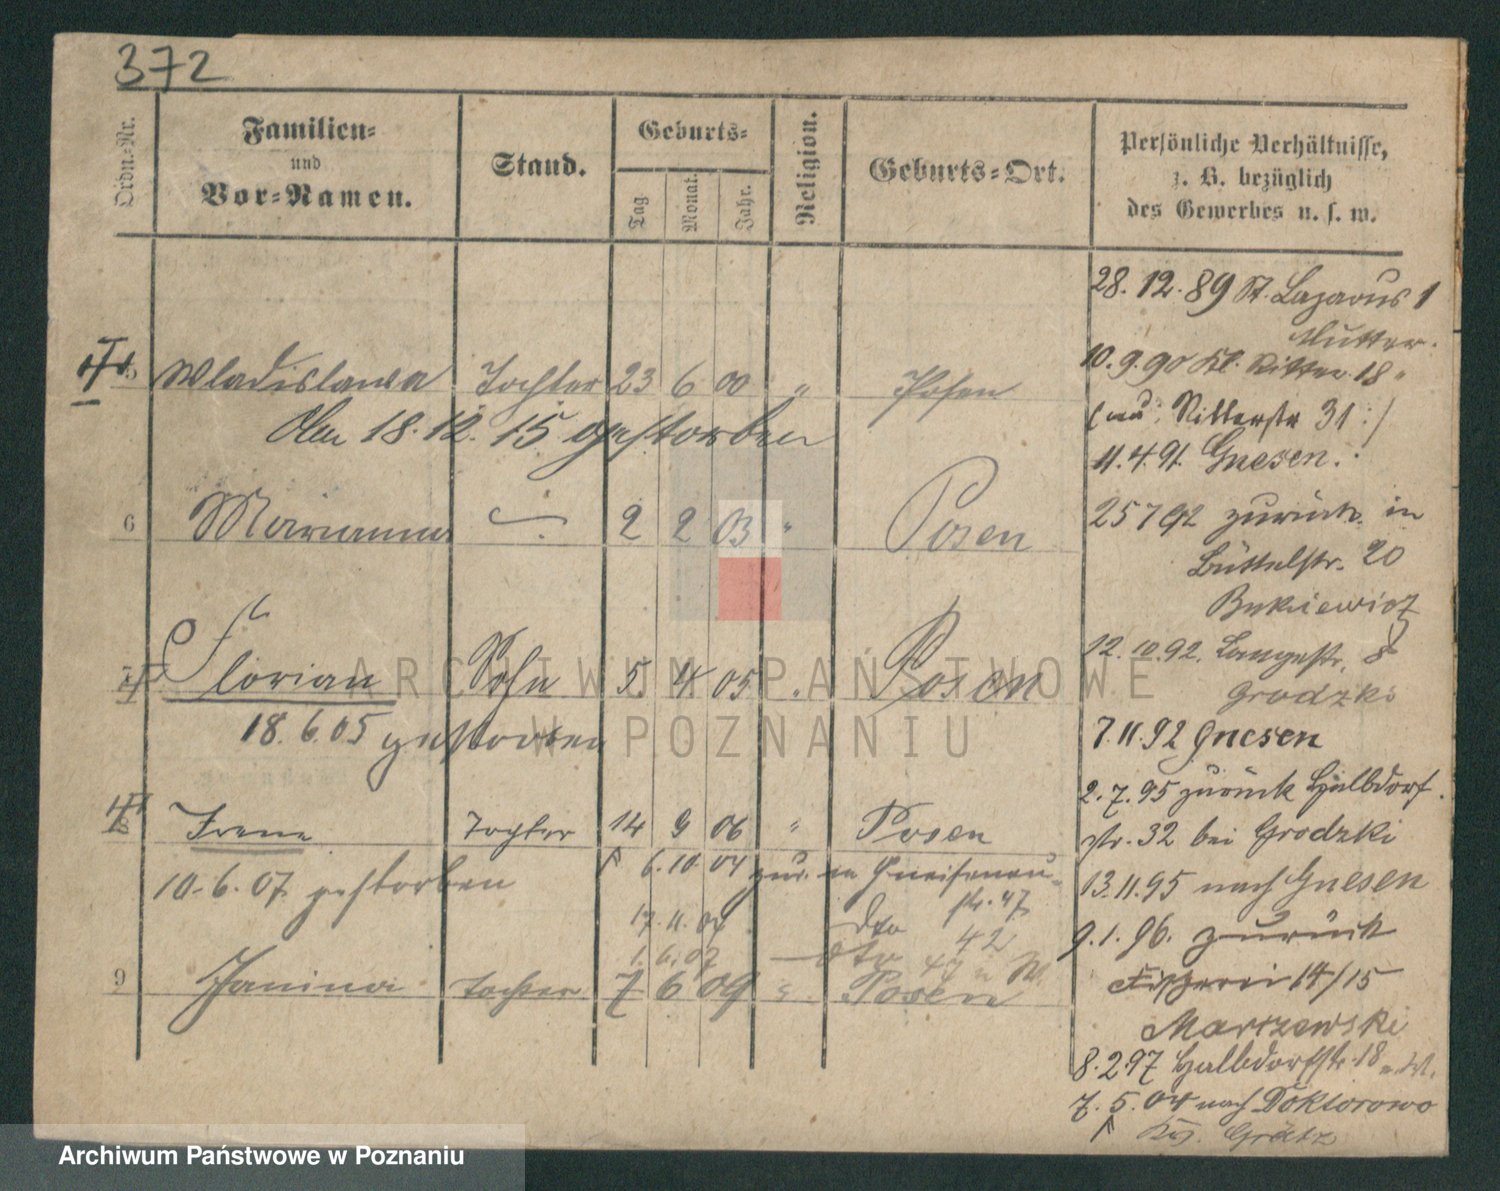 372
Ordn.-Nr.
Familien-
und
Vor-Namen.
Stand.
Geburts-
Tag
Monat.
Jahr.
Religion.
Geburts-Ort.
Persönliche Verhältnisse,
z. B. bezüglich
des Gewerbes u. s. w.
5 Wladislawa Tochter 23 6 00 " Posen
Am 18.12.15 gestorben
6 Marianna 2 2 03 " Posen
7 Florian Sohn 5 4 05 Posen
18.6.05 gestorben
8 Irene Tochter 14 9 06 " Posen
10.6.07 gestorben
6.10.04 zur. in Gneisenau-
str. 47
17.11.04 dto 42
1.6.07 dto 47
9 Janina Tochter 7 6 09 Posen
28.12.89 St. Lazarus 1
Mutter.
10.9.90 Kl. Ritter 18
Ritterstr 31 :/
11.4.91. Gnesen.
25 7 92 zurück in
Büttelstr. 20
12.10.92. Langestr. 8
Grodzki
7.11.92 Gnesen
2.7.95 zurück Halbdorf.
str. 32 bei Grodzki
13.11.95 nach Gnesen
9.1.96. zurück
Fischerei 14/15
Marszewski
8.2.97 Halbdorfstr. 18
7.5.04 nach Doktorowo
Krs. Grätz
ARCHIWUM PAŃSTWOWE
W POZNANIU
Archiwum Państwowe w Poznaniu